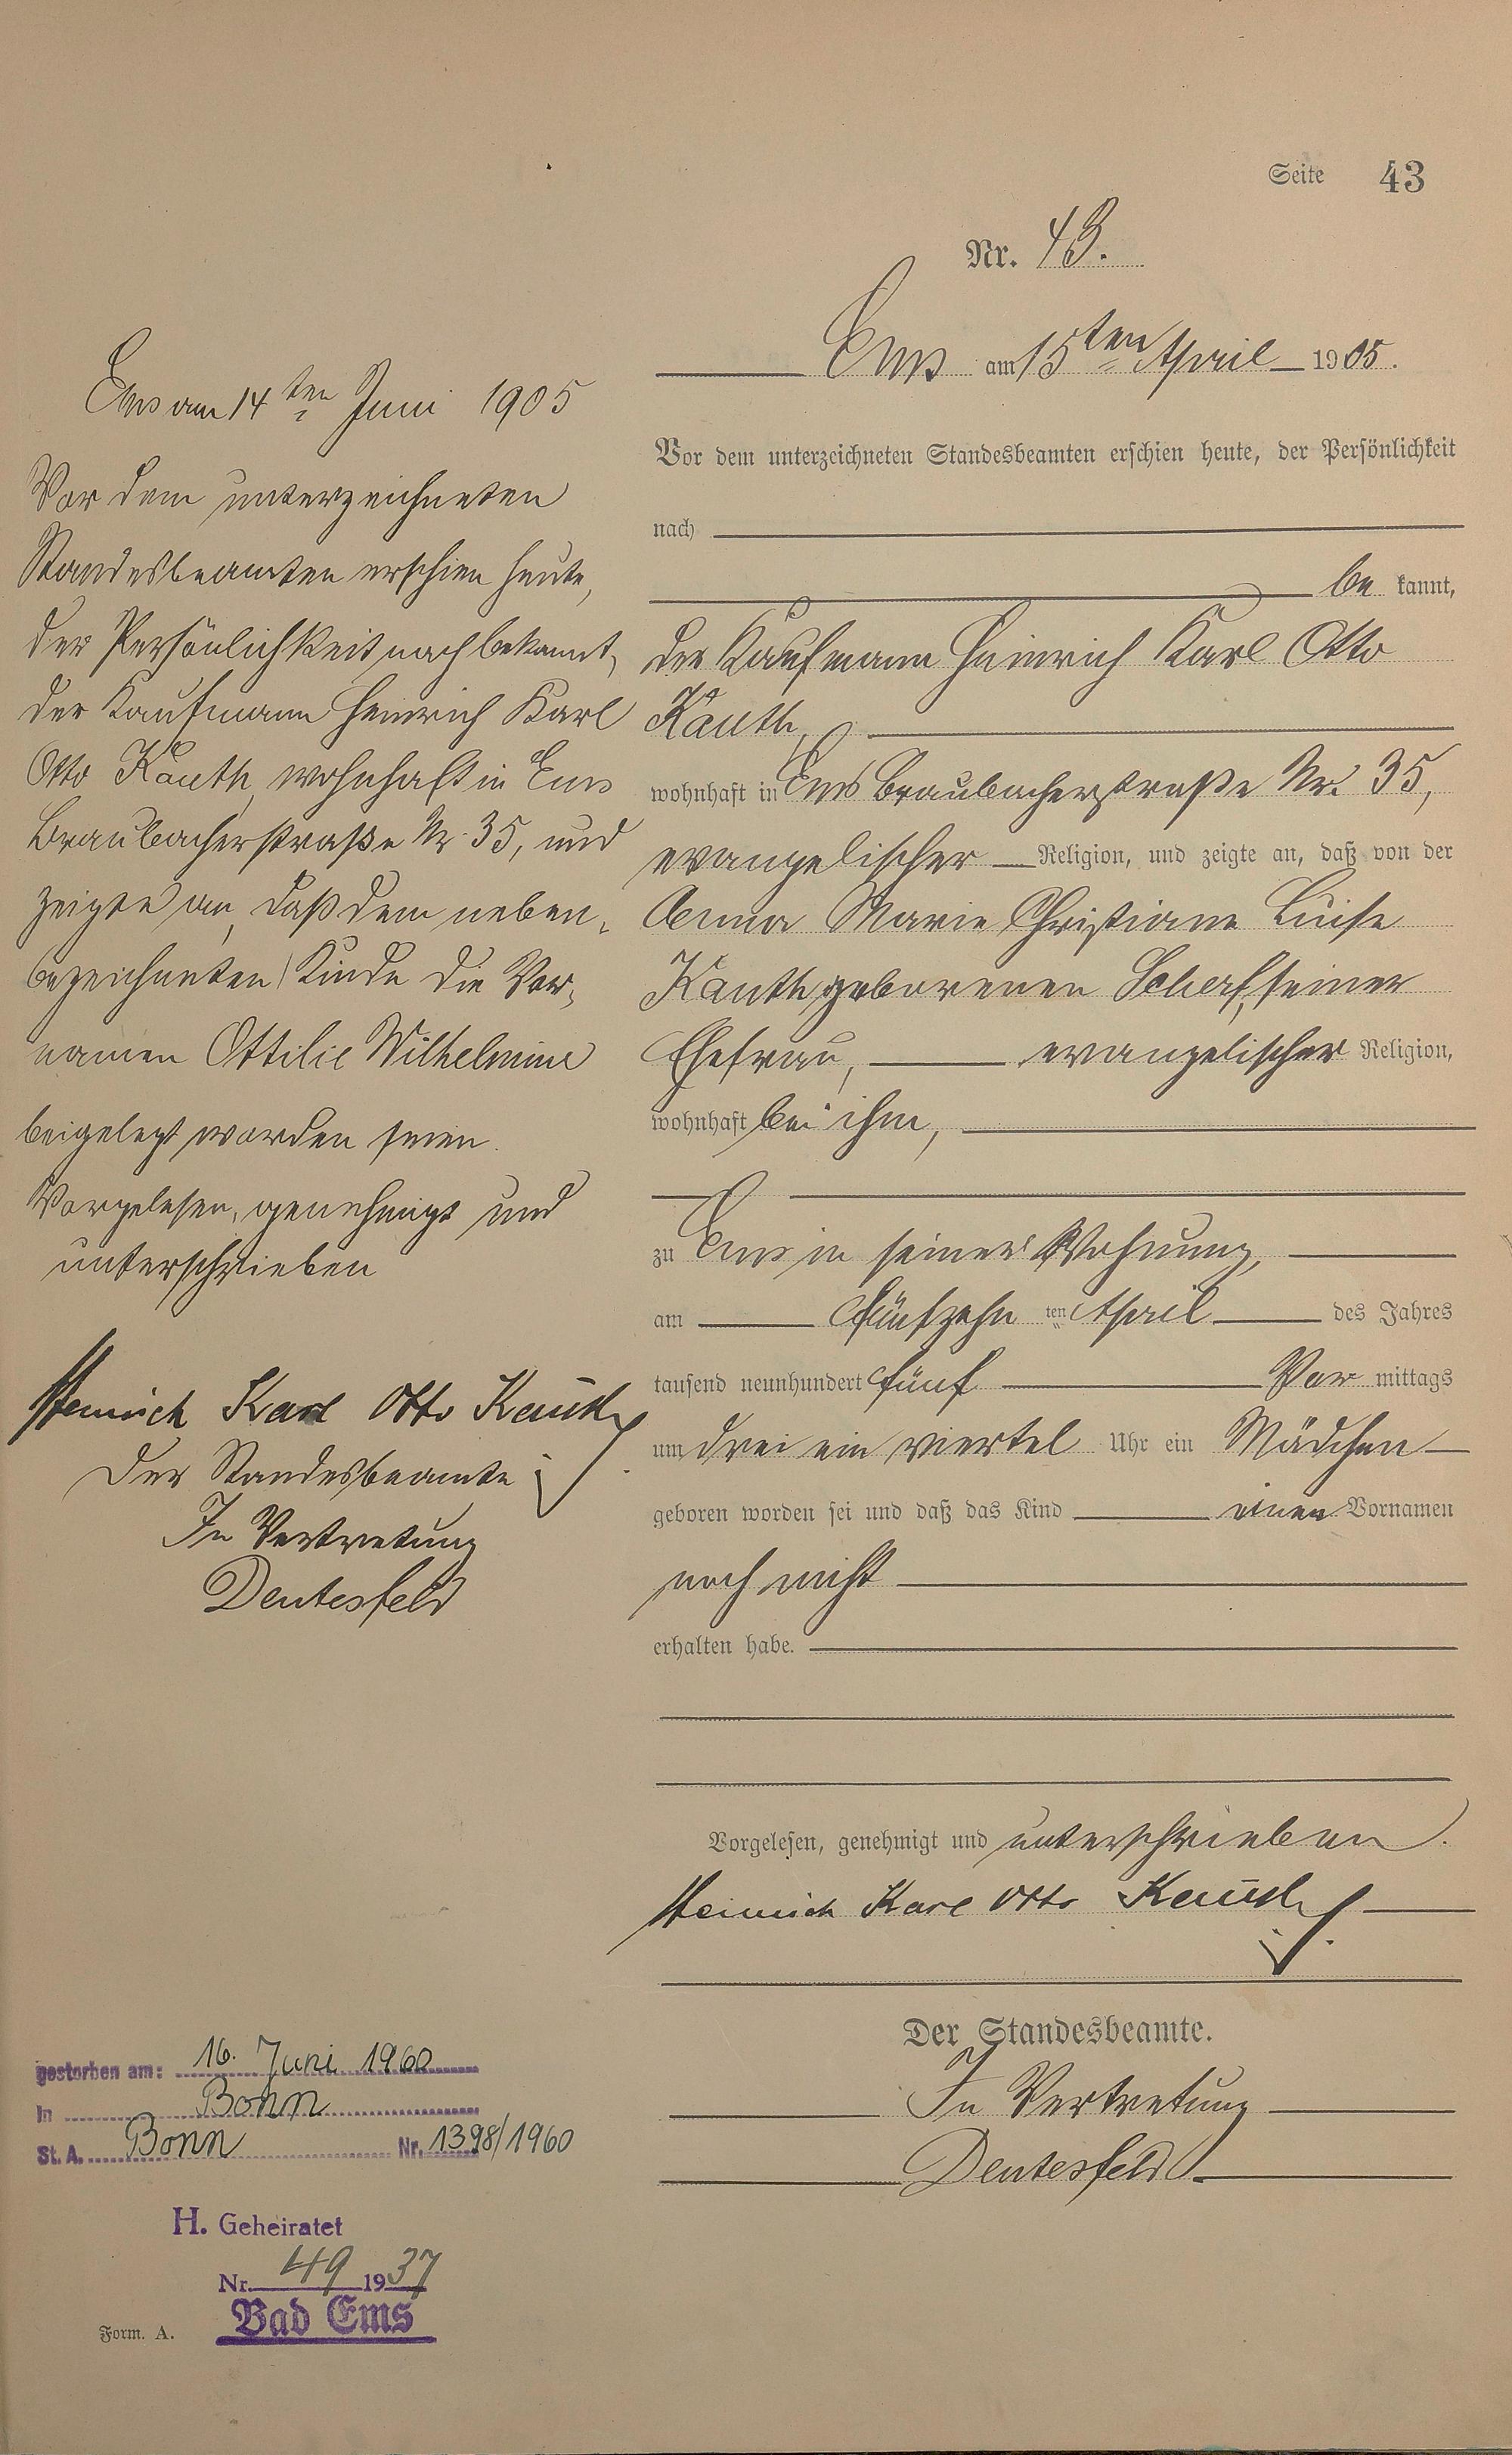 Seite 43
Nr. 43.
Ems am 15ten April 1905.
Vor dem unterzeichneten Standesbeamten erschien heute, der Persönlichkeit
nach
be kannt,
der Kaufmann Heinrich Karl Otto
Kauth,
wohnhaft in Ems Braubacherstraße Nr. 35,
evangelischer Religion, und zeigte an, daß von der
Anna Marie Christiane Luise
Kauth geborenen Schaf, seiner
Ehefrau, evangelischer Religion,
wohnhaft bei ihm,
zu Ems in seiner Wohnung,
am fünfzehn ten April des Jahres
tausend neunhundert fünf Vor mittags
um drei ein viertel Uhr ein Mädchen
geboren worden sei und daß das Kind einen Vornamen
noch nicht
erhalten habe.
Vorgelesen, genehmigt und unterschrieben.
Heinrich Karl Otto Kauth
Der Standesbeamte.
In Vertretung
Deutesfeld
Ems am 14ten Juni 1905
Vor dem unterzeichneten
Standesbeamten erschien heute,
der Persönlichkeit nach bekannt,
der Kaufmann Heinrich Karl
Otto Kauth, wohnhaft in Ems
Braubacherstraße Nr. 35, und
zeigte an, daß dem neben-
bezeichneten Kinde die Vor-
namen Ottilie Wilhelmine
beigelegt worden seien.
Vorgelesen, genehmigt und
unterschrieben
Heinrich Karl Otto Kauth
Der Standesbeamte
In Vertretung
Deutesfeld
gestorben am: 16. Juni 1960
In Bonn
St. A. Bonn Nr. 1398/1960
H. Geheiratet
Nr. 49 1937
Bad Ems
Form. A.